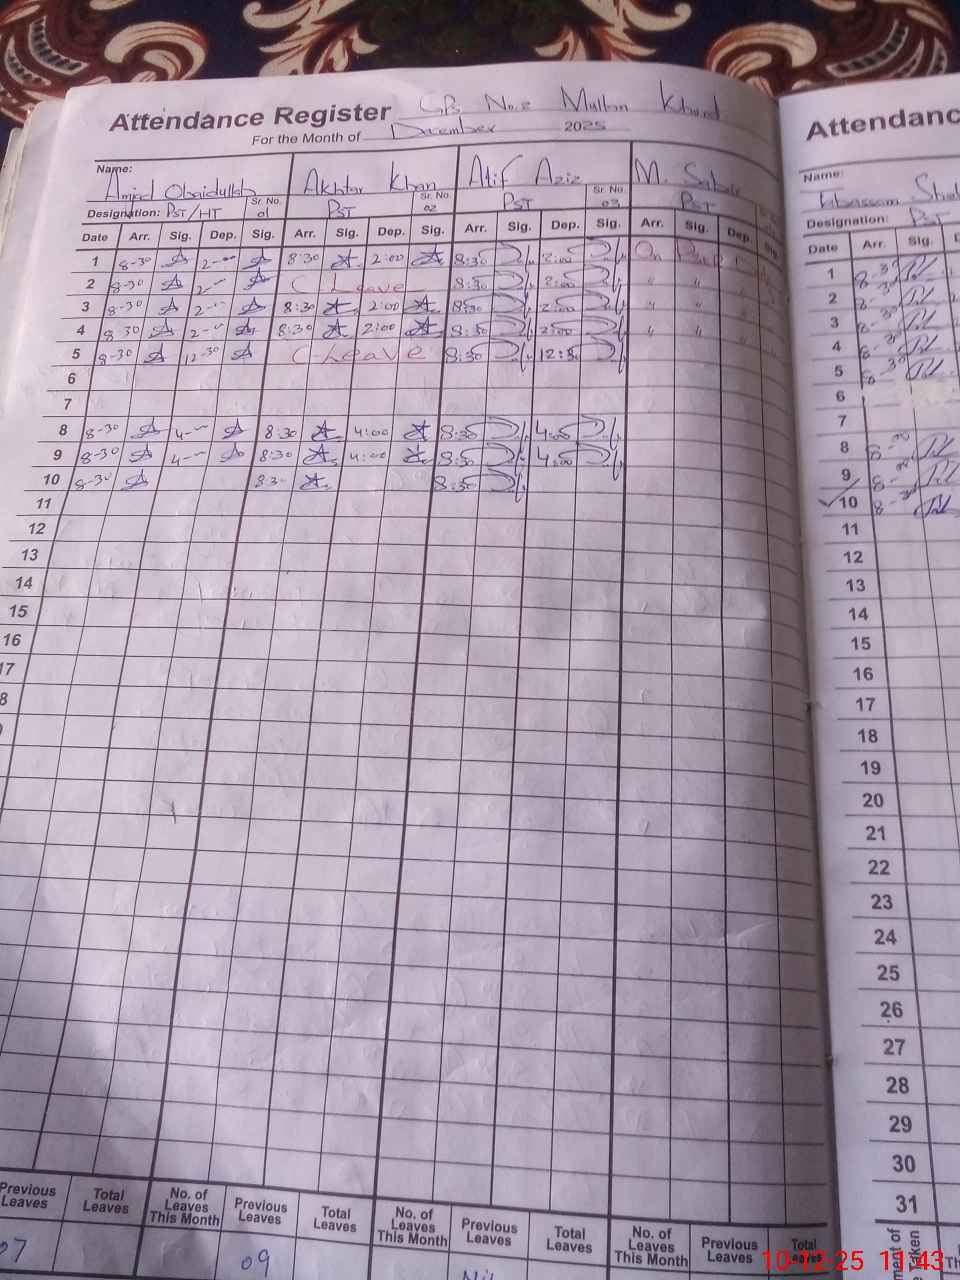 Attendance Register GPS No.2 Mullan Khard
For the Month of December 2025
Name: Amjad Obaidullah Akhtar Khan Atif Aziz M. Sabir
Designation: PST/HT Sr. No. 01 PST Sr. No. 02 PST Sr. No. 03 PST
Date Arr. Sig. Dep. Sig. Arr. Sig. Dep. Sig. Arr. Sig. Dep. Sig. Arr. Sig. Dep. Sig.
1 8-30 2- 8:30 2:00 8:30 2:00 On
2 8-30 2- C Leave 8:30 2:00 " "
3 8-30 2- 8:30 2:00 8:30 2:00 " "
4 8-30 2- 8:30 2:00 8:30 2:00 " "
5 8-30 12-30 C-Leave 8:30 12:30
6
7
8 8-30 4- 8:30 4:00 8:30 4:00
9 8-30 4- 8:30 4:00 8:30 4:00
10 8-30 8:30 8:30
11
12
13
14
15
16
17
8
Previous Leaves Total Leaves No. of Leaves This Month Previous Leaves Total Leaves No. of Leaves This Month Previous Leaves Total Leaves No. of Leaves This Month Previous Leaves Total Leaves
07 09 Nil
Attendanc
Name:
Designation: PST
Date Arr. Sig.
1 8-30
2 8-30
3 8-30
4 8-30
5 8-30
6
7
8 8-00
9 8-00
10 8-30
11
12
13
14
15
16
17
18
19
20
21
22
23
24
25
26
27
28
29
30
31
10-12-25 11:43